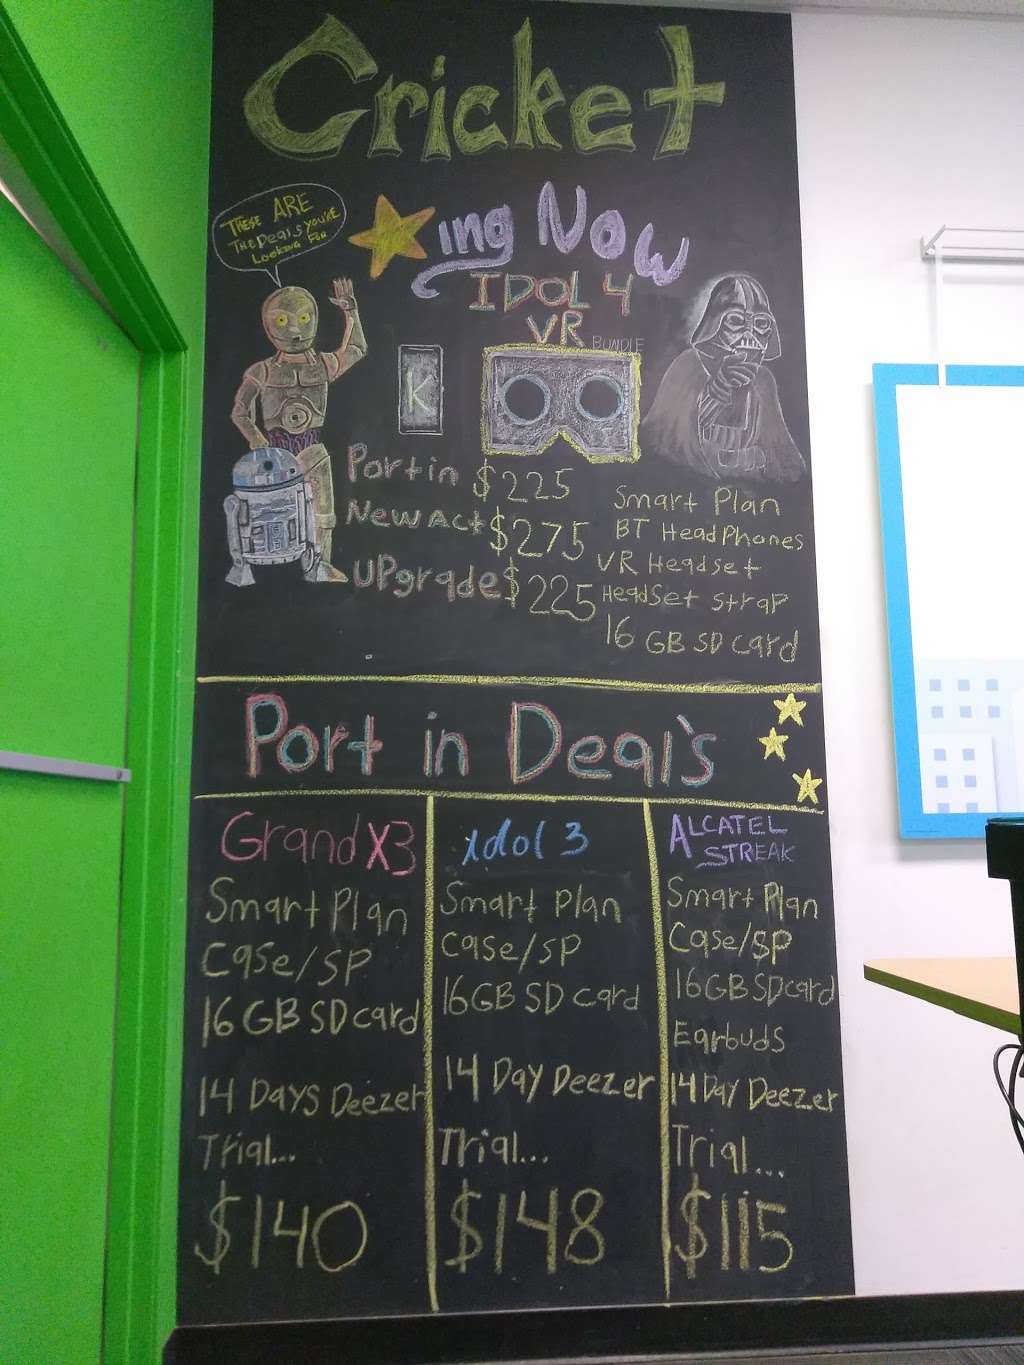 Cricket
THESE ARE
THE Deals YOU'RE
LOOKING FOR
ing Now
IDOL 4
VR
BUNDLE
K
Port in $225
New Act $275
UPgrade $225
Smart Plan
BT HeadPhones
VR Headset
Headset strap
16 GB SD card
Port in Deal's
Grand X3
Smart Plan
Case/SP
16 GB SD card
14 Days Deezer
Trial...
$140
Idol 3
Smart Plan
Case/SP
16GB SD card
14 Day Deezer
Trial...
$148
ALCATEL
STREAK
Smart Plan
Case/SP
16GB SD card
Earbuds
14 Day Deezer
Trial...
$115